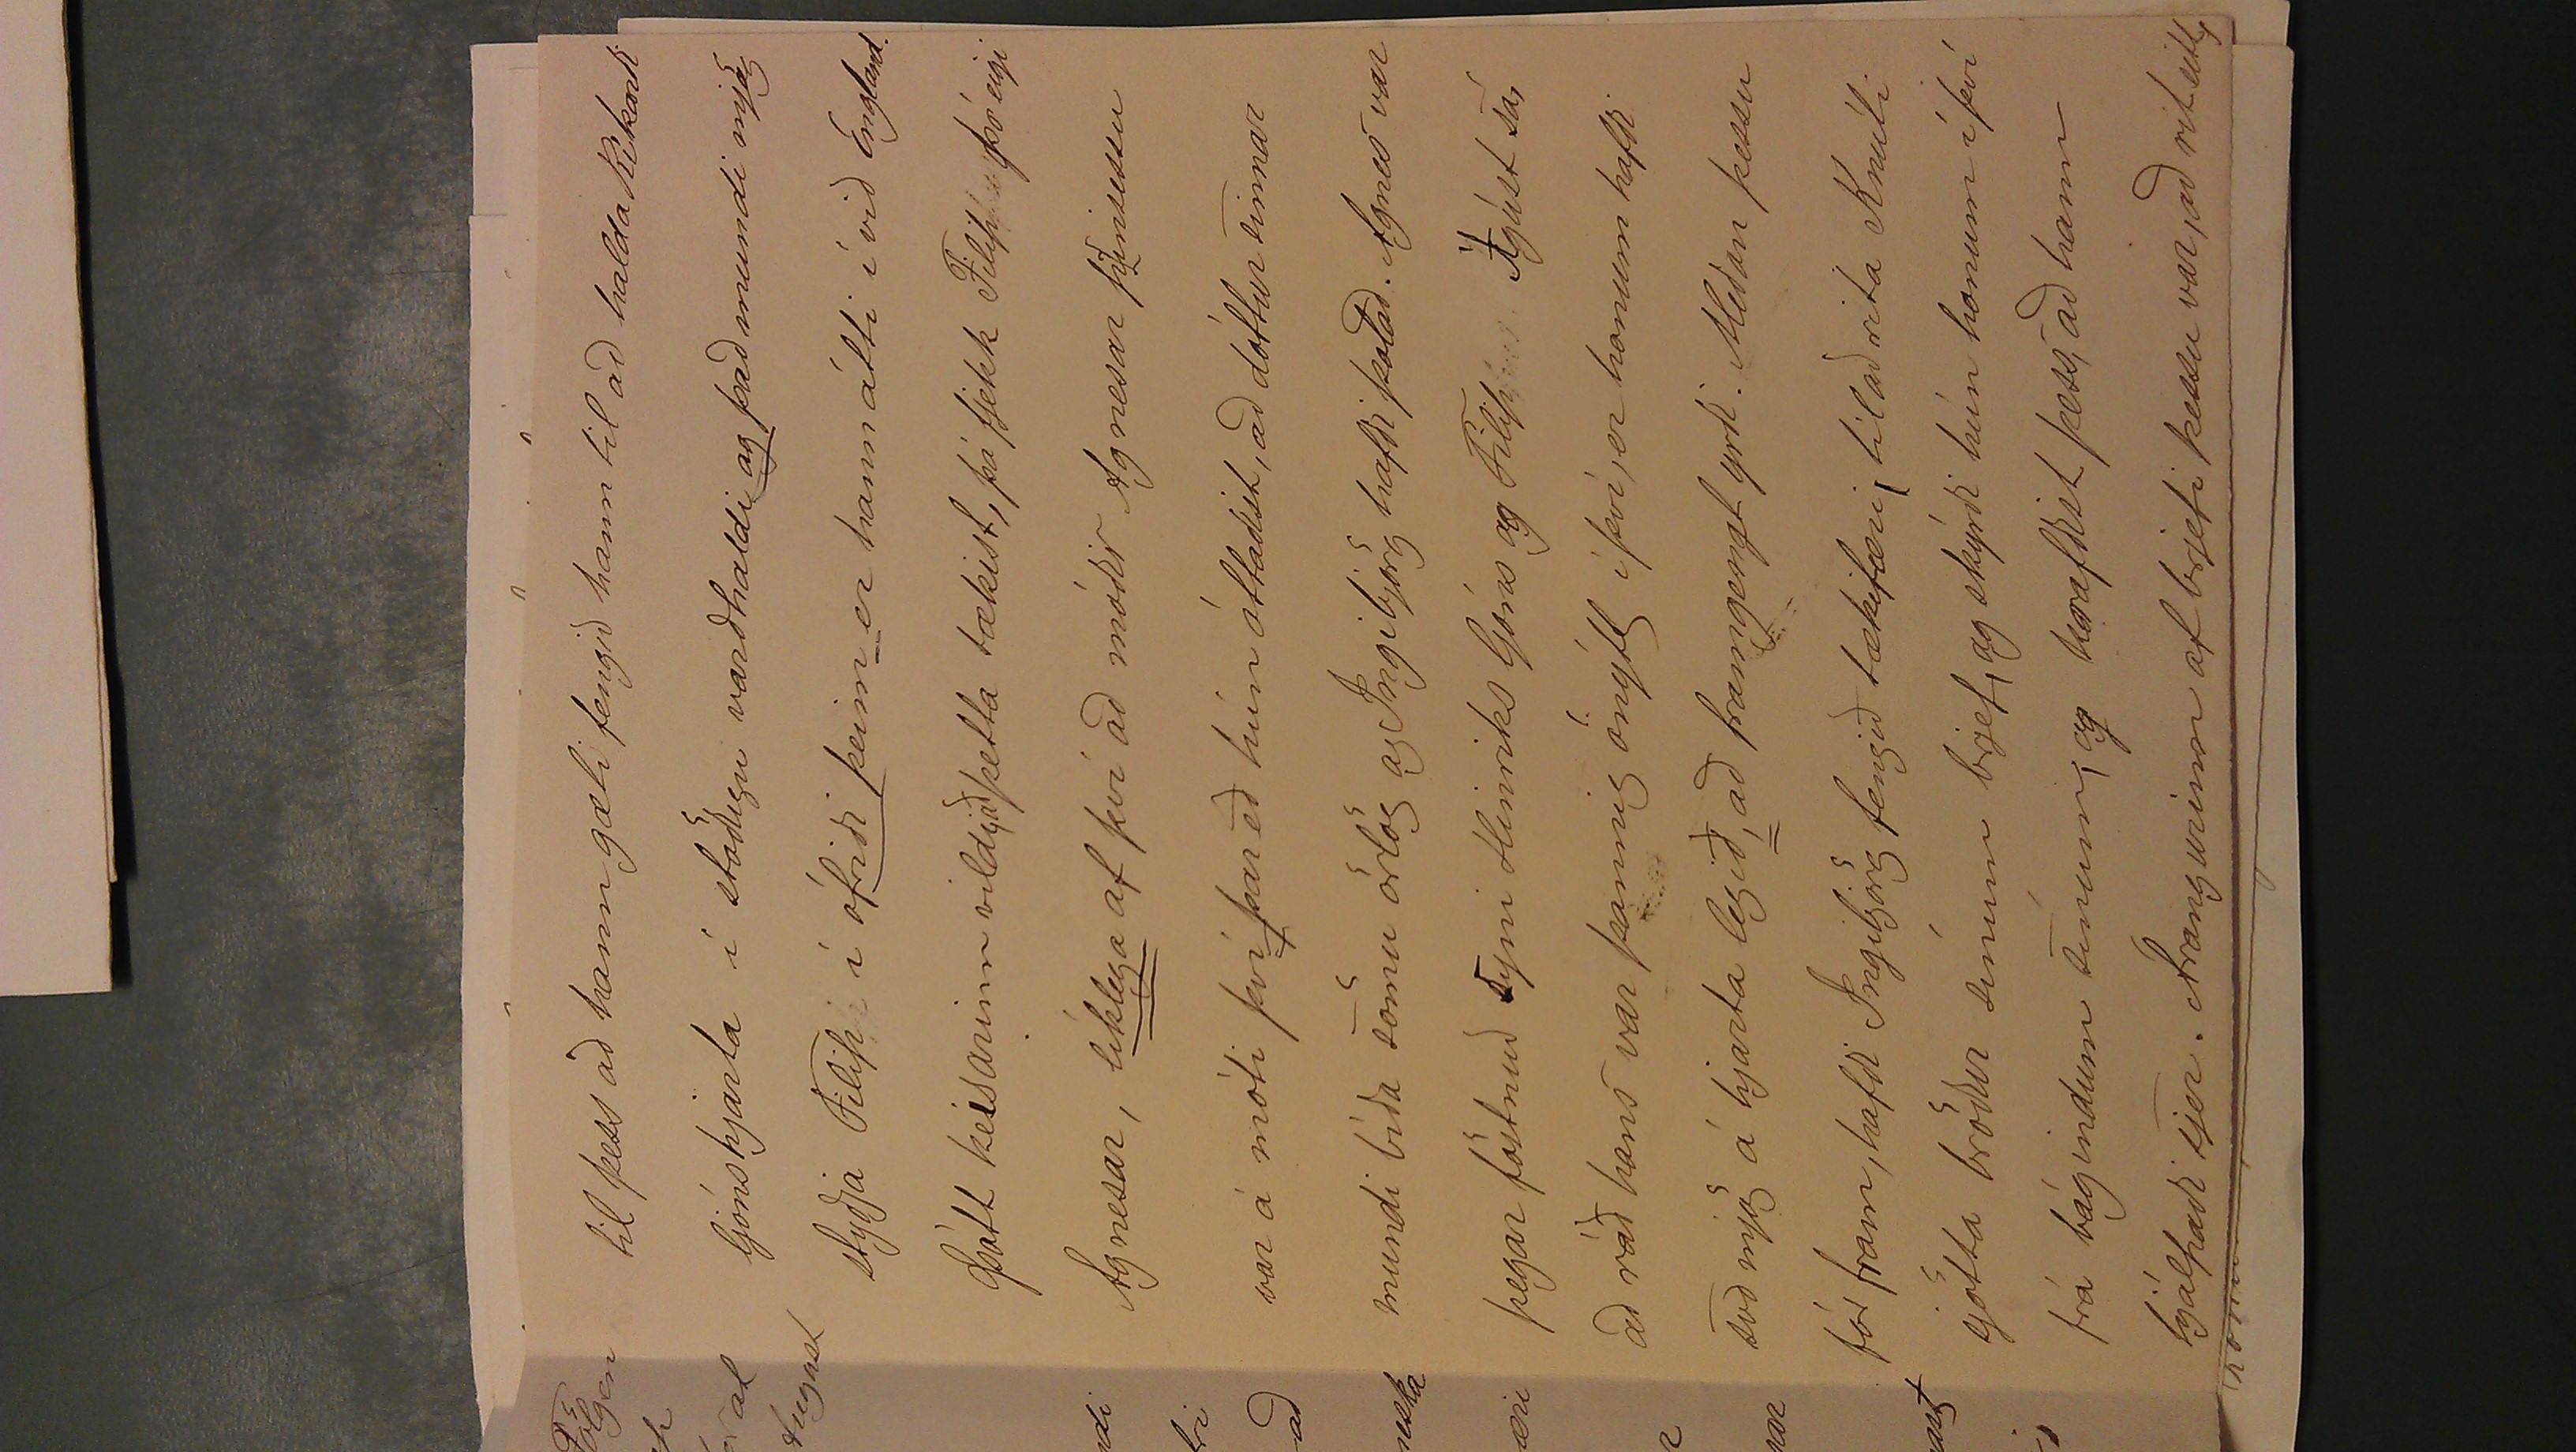 til þess að hann gæti fengið hann til að halda Rikarði
ljónshjarta í stöðugu varðhaldi, og það mundi mjög
styðja Filipp í ófriði þeim er hann átti í við England.
Þótt keisarinn vildi, að þetta tækist, þá fjekk Filipp þó eigi
Agnesar, líklega af því að móðir Agnesar
var á móti því þar eð hún óttaðist, að dóttur sinnar
mundi bíða sömu örlög og Ingibjörg hafði þolað. Agnes var
þegar föstnuð syni Hinriks ljóns og Filipp Ágúst sá,
að ráð hans var þannig ónýtt í því, er honum hafði
svo mjög á hjarta legið, að framgengt yrði. Meðan þessu
fór fram, hafði Ingibjörg fengið tækifæri, til að rita Knúti
sjötta bróður sínum brjef, og skýrði hún honum í því
frá bágindum sínum, og krafðist þess, að hann
hjálpaði sjer. Árangurinn af brjefi þessu var, að